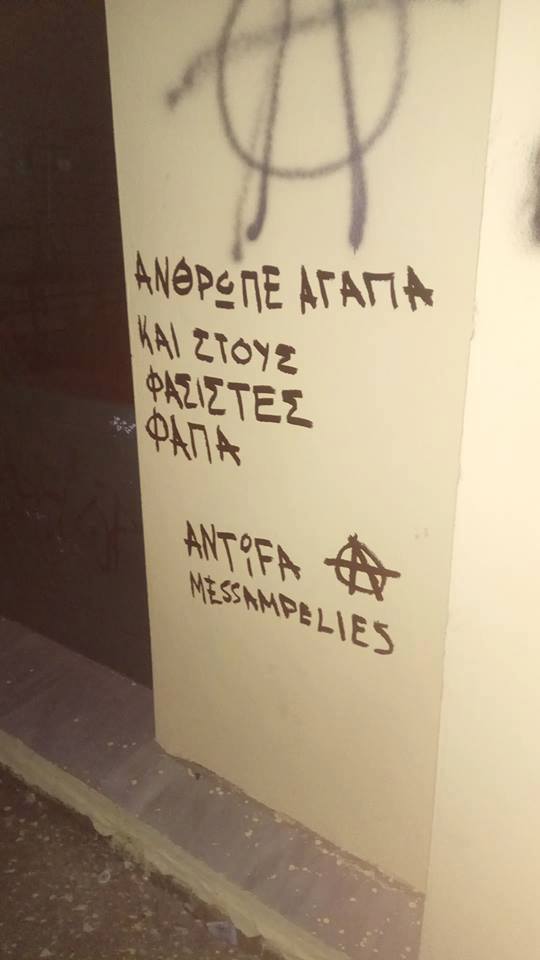 ΑΝΘΡΩΠΕ ΑΓΑΠΑ
ΚΑΙ ΣΤΟΥΣ
ΦΑΣΙΣΤΕΣ
ΦΑΠΑ
ANTiFA Ⓐ
MESSAMPELIES